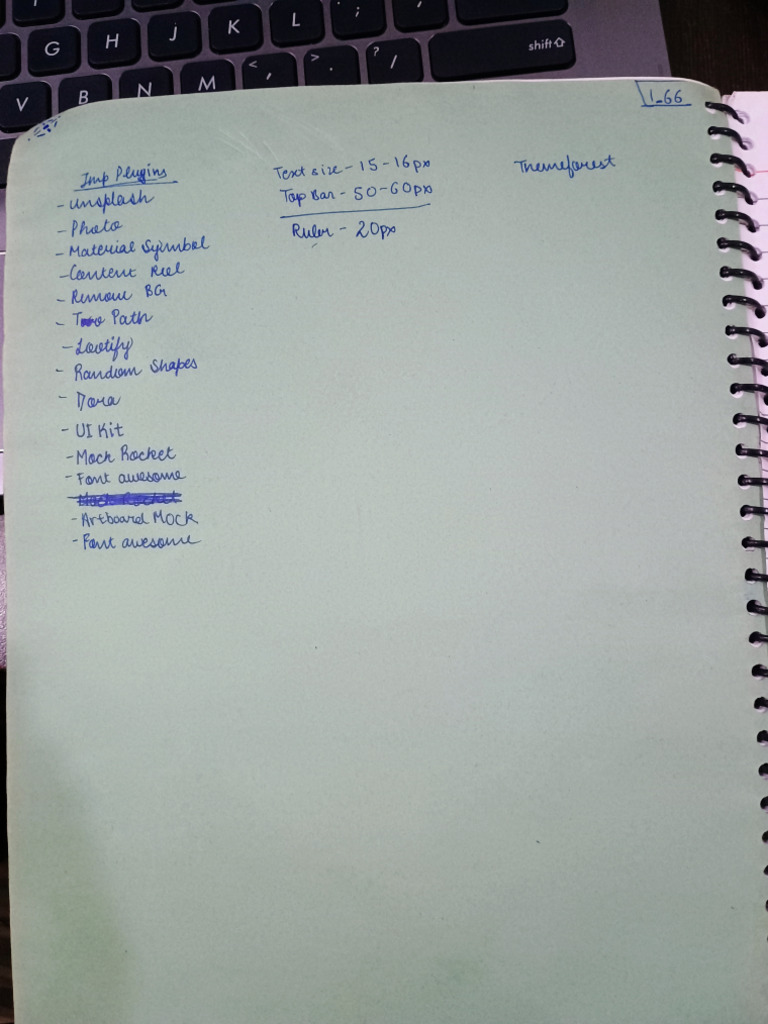 G H J K L ;
shift
V B N M < , > . ? /
1-66
Imp Plugins
- Unsplash
- Photo
- Material Symbol
- Content Reel
- Remove BG
- To Path
- Lootify
- Random Shapes
- Dora
- UI Kit
- Mock Rocket
- Font awesome
- Artboard Mock
- Font awesome
Text size - 15-16px
Top Bar - 50-60px
Ruler - 20px
Themeforest